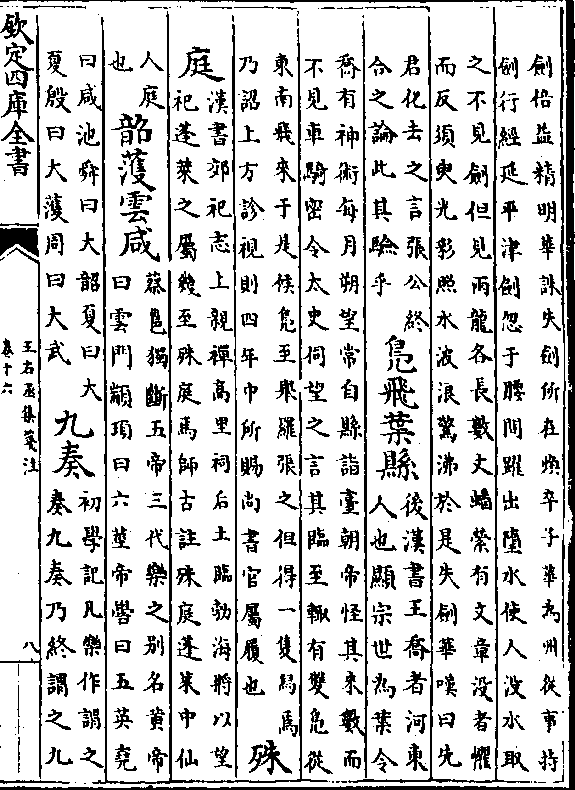 劍倍益精明華誅失劍所在煥卒子華為州從事持
劍行經延平津劍忽于腰間躍出墮水使人沒水取
之不見劍但見兩龍各長數丈蟠縈有文章沒者懼
而反須臾光彩照水波浪驚沸於是失劍華嘆曰先
君化去之言張公終
合之論此其驗乎
鳬飛葉縣
後漢書王喬者河東
人也顯宗世為葉令
喬有神術每月朔望常自縣詣臺朝帝怪其來數而
不見車騎密令太史伺望之言其臨至輒有雙鳬從
東南飛來于是候鳬至舉羅張之但得一隻舄焉
乃詔上方診視則四年中所賜尚書官屬履也
殊
庭
漢書郊祀志上親禪高里祠后土臨勃海將以望
祀蓬萊之屬幾至殊庭焉師古註殊庭蓬萊中仙
人庭
也
韶濩雲咸
蔡邕獨斷五帝三代樂之别名黄帝
曰雲門顓頊曰六莖帝嚳曰五英堯
曰咸池舜曰大韶夏曰大
夏殷曰大濩周曰大武
九奏
初學記凡樂作謂之
奏九奏乃終謂之九
欽定四庫全書
王右丞集箋注
卷十六
八